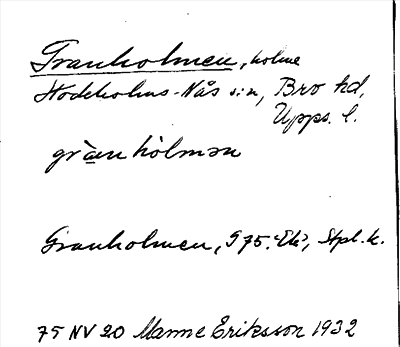 Granholmen, holme
Stockholms-Näs sn, Bro hd,
Upps. l.
grà̱nhòlmən
Granholmen, G 75. 'Ek', Stpl. k.
75 NV 20 Manne Eriksson 1932